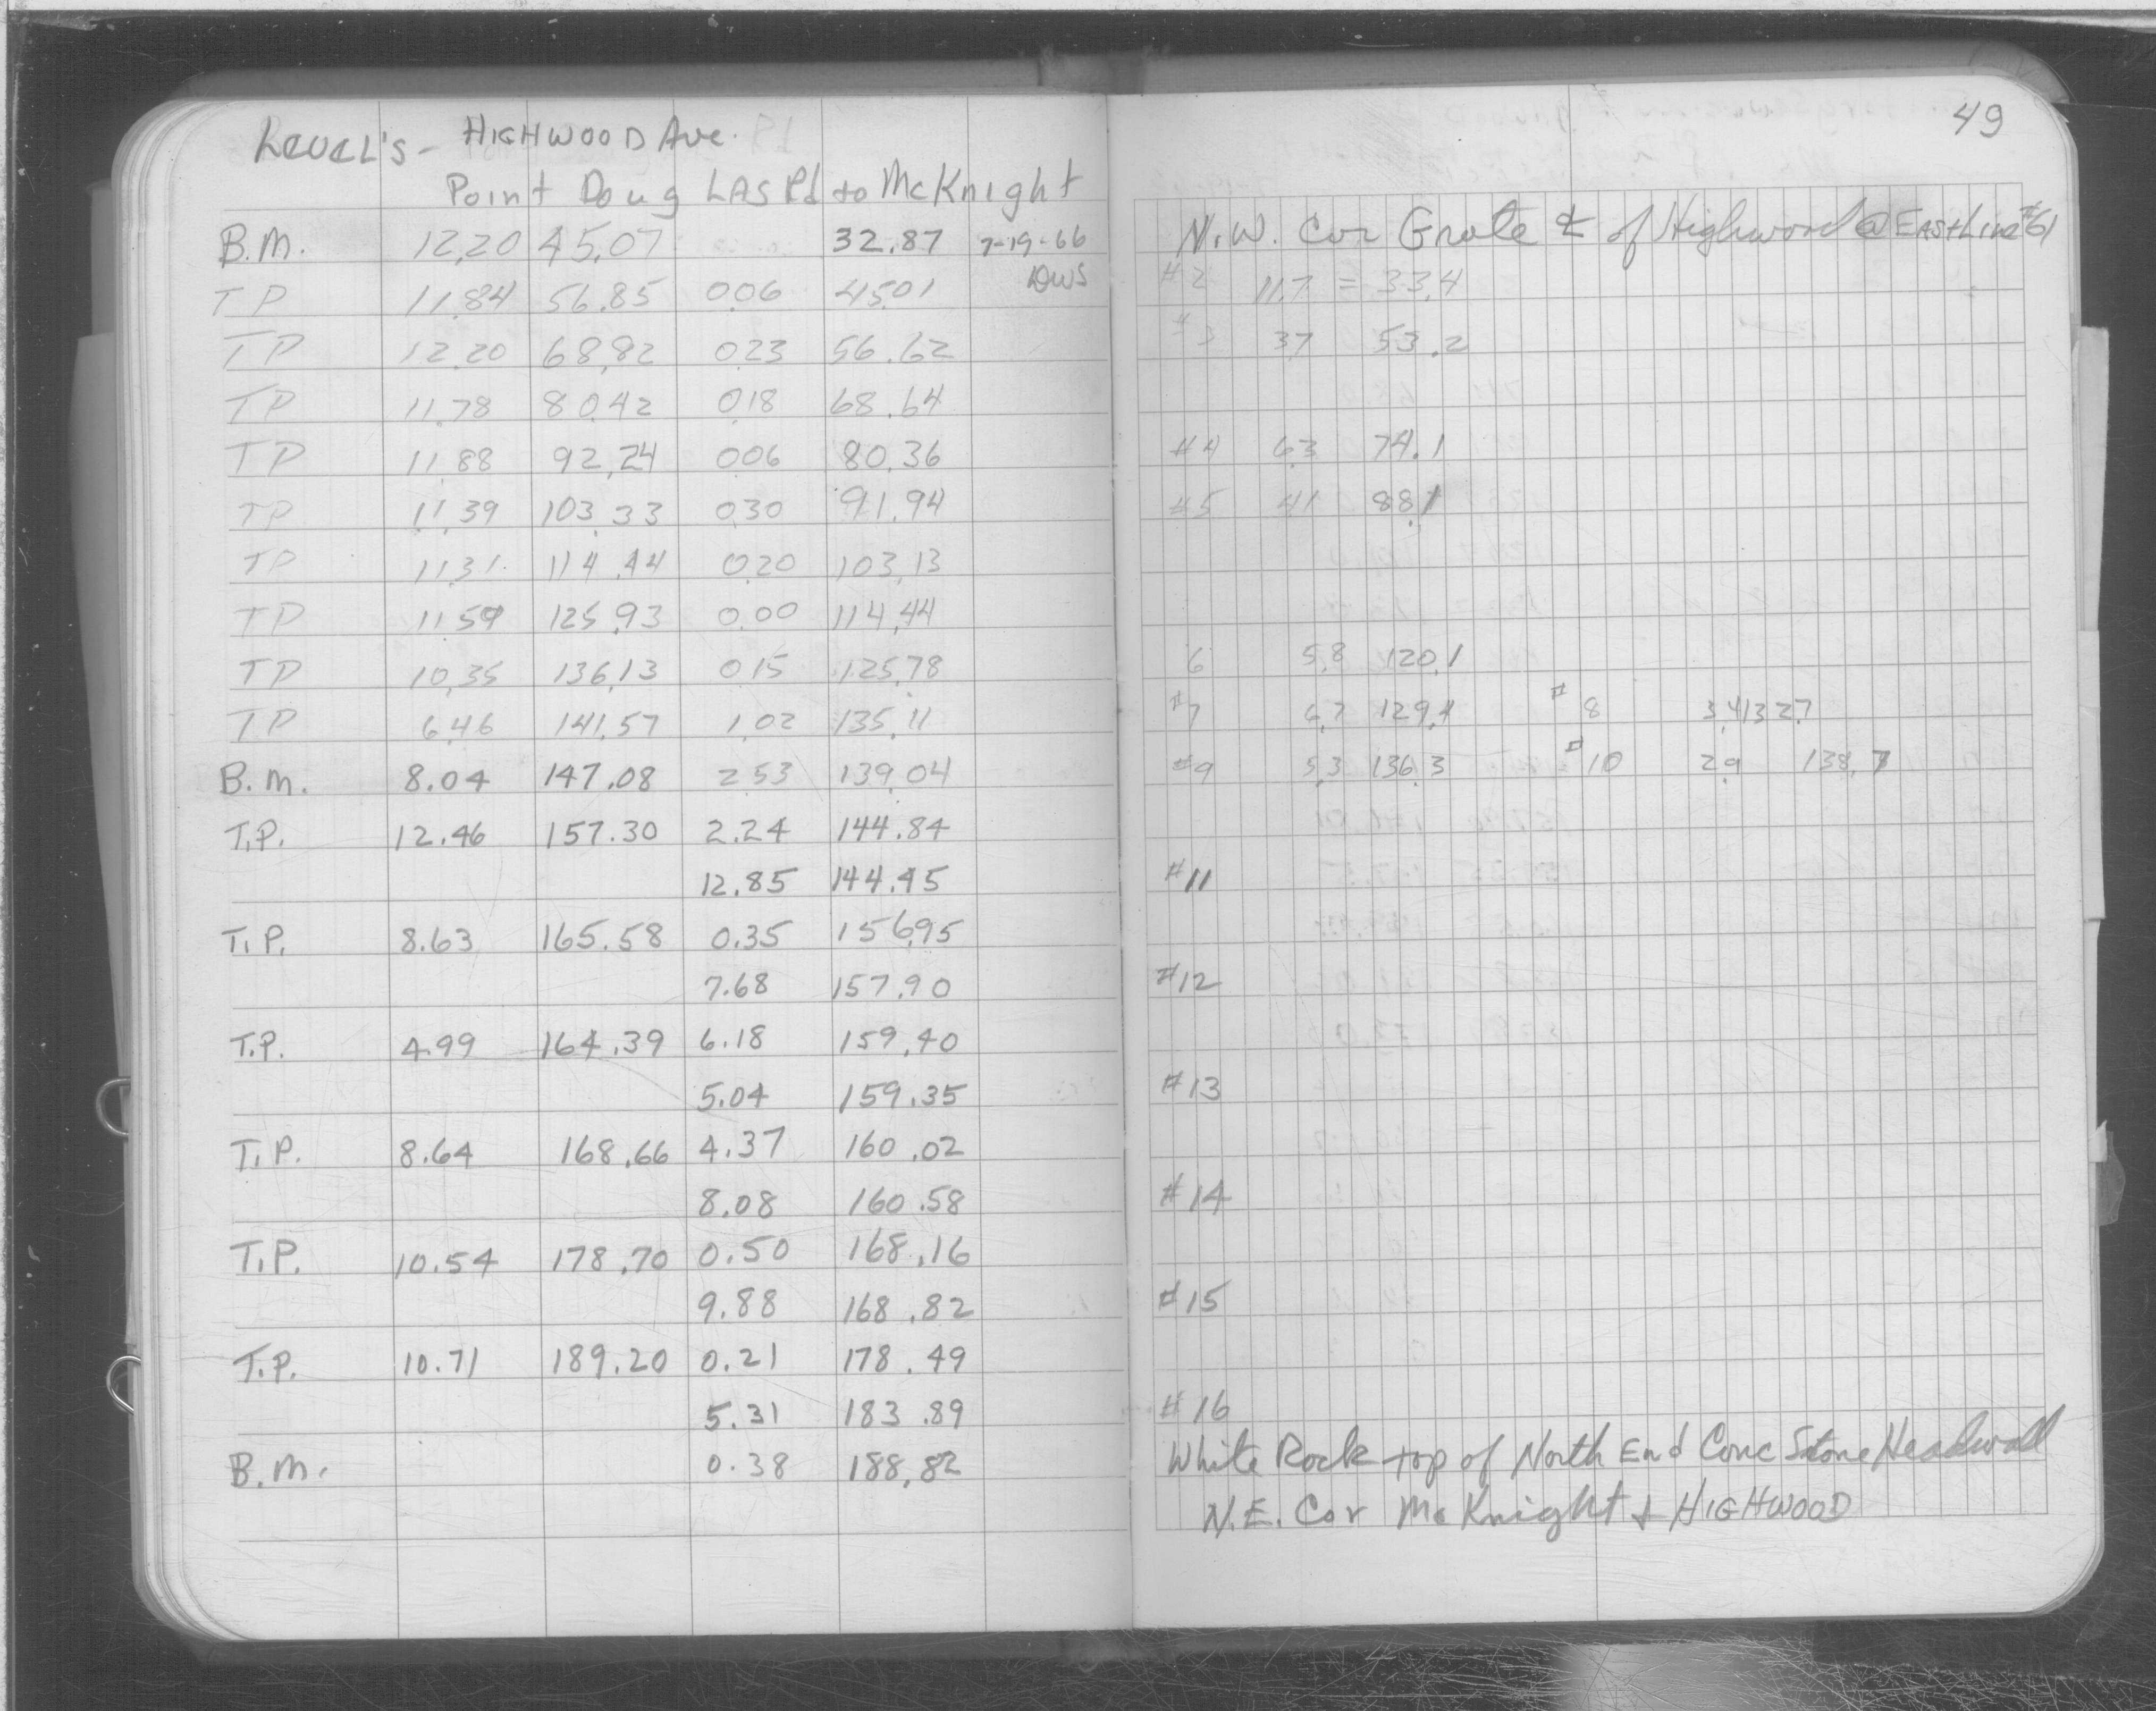 49
LEVEL'S - HIGHWOOD AVE.
Point Doug LAS Rd to McKnight
B.M. 12.20 45.07 32.87 7-19-66
TP 11.84 56.85 0.06 45.01 DWS
TP 12.20 68.82 0.23 56.62
TP 11.78 80.42 0.18 68.64
TP 11.88 92.24 0.06 80.36
TP 11.39 103.33 0.30 91.94
TP 11.31 114.44 0.20 103.13
TP 11.59 125.93 0.00 114.44
TP 10.35 136.13 0.15 125.78
TP 6.46 141.57 1.02 135.11
B.M. 8.04 147.08 2.53 139.04
T.P. 12.46 157.30 2.24 144.84
12.85 144.45
T.P. 8.63 165.58 0.35 156.95
7.68 157.90
T.P. 4.99 164.39 6.18 159.40
5.04 159.35
T.P. 8.64 168.66 4.37 160.02
8.08 160.58
T.P. 10.54 178.70 0.50 168.16
9.88 168.82
T.P. 10.71 189.20 0.21 178.49
5.31 183.89
B.M. 0.38 188.82
N.W. Cor Grate ⅊ of Highwood @ EAST Line #61
#2 11.7 = 33.4
#3 3.7 53.2
#4 6.3 74.1
#5 4.1 88.1
6 5.8 120.1
#7 6.7 129.4 #8 3.4 132.7
#9 5.3 136.3 #10 2.9 138.7
#11
#12
#13
#14
#15
#16
White Rock top of North End Conc Stone Headwall
N.E. Cor McKnight & HIGHWOOD